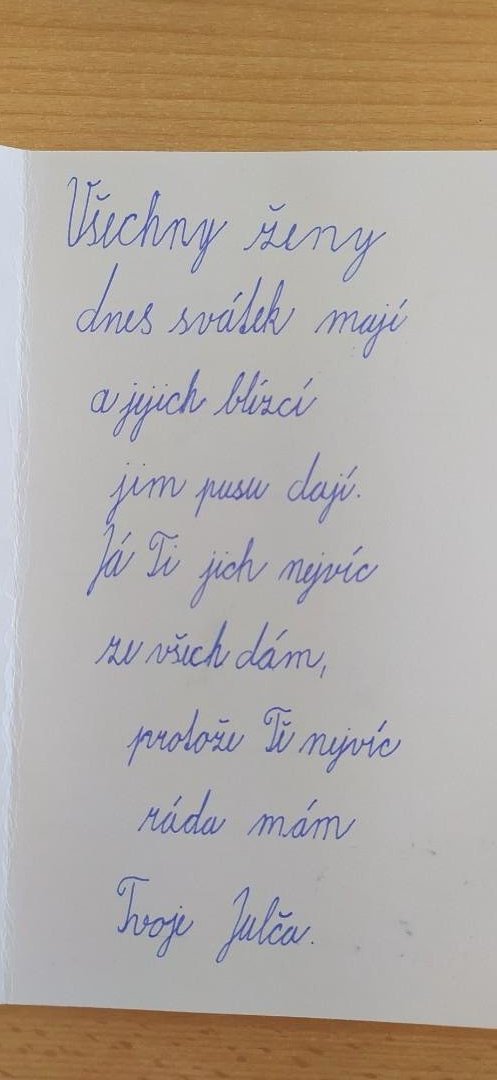 Všechny ženy
dnes svátek mají
a jejich blízcí
jim pusu dají.
Já Ti jich nejvíc
ze všech dám,
protože Tě nejvíc
ráda mám
Tvoje Julča.